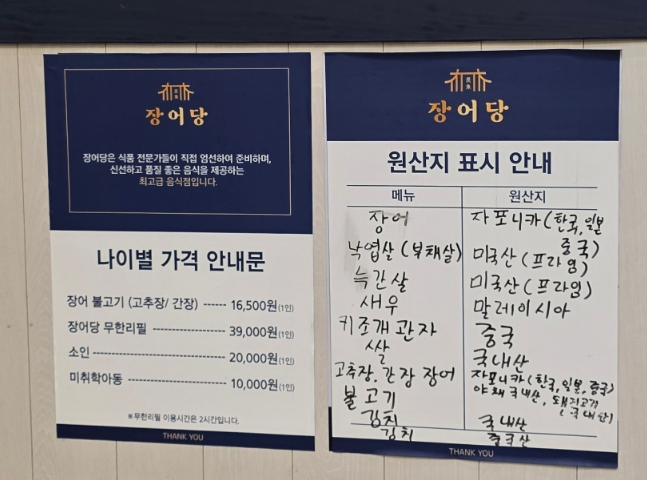 장어당
장어당은 식품 전문가들이 직접 엄선하여 준비하며,
신선하고 품질 좋은 음식을 제공하는
최고급 음식점입니다.
나이별 가격 안내문
장어 불고기 (고추장/ 간장) ------ 16,500원(1인)
장어당 무한리필 ---------------- 39,000원(1인)
소인 -------------------------- 20,000원(1인)
미취학아동 -------------------- 10,000원(1인)
※무한리필 이용시간은 2시간입니다.
THANK YOU
장어당
원산지 표시 안내
메뉴 원산지
장어 자포니카(한국,일본
중국)
낙엽살(부채살) 미국산(프라임)
늑간살 미국산(프라임)
새우 말레이시아
키조개관자 중국
쌀 국내산
고추장,간장 장어 자포니카(한국,일본,중국)
불고기 야채 국내산, 돼지고기
(국내산)
김치 국내산
김치 중국산
THANK YOU